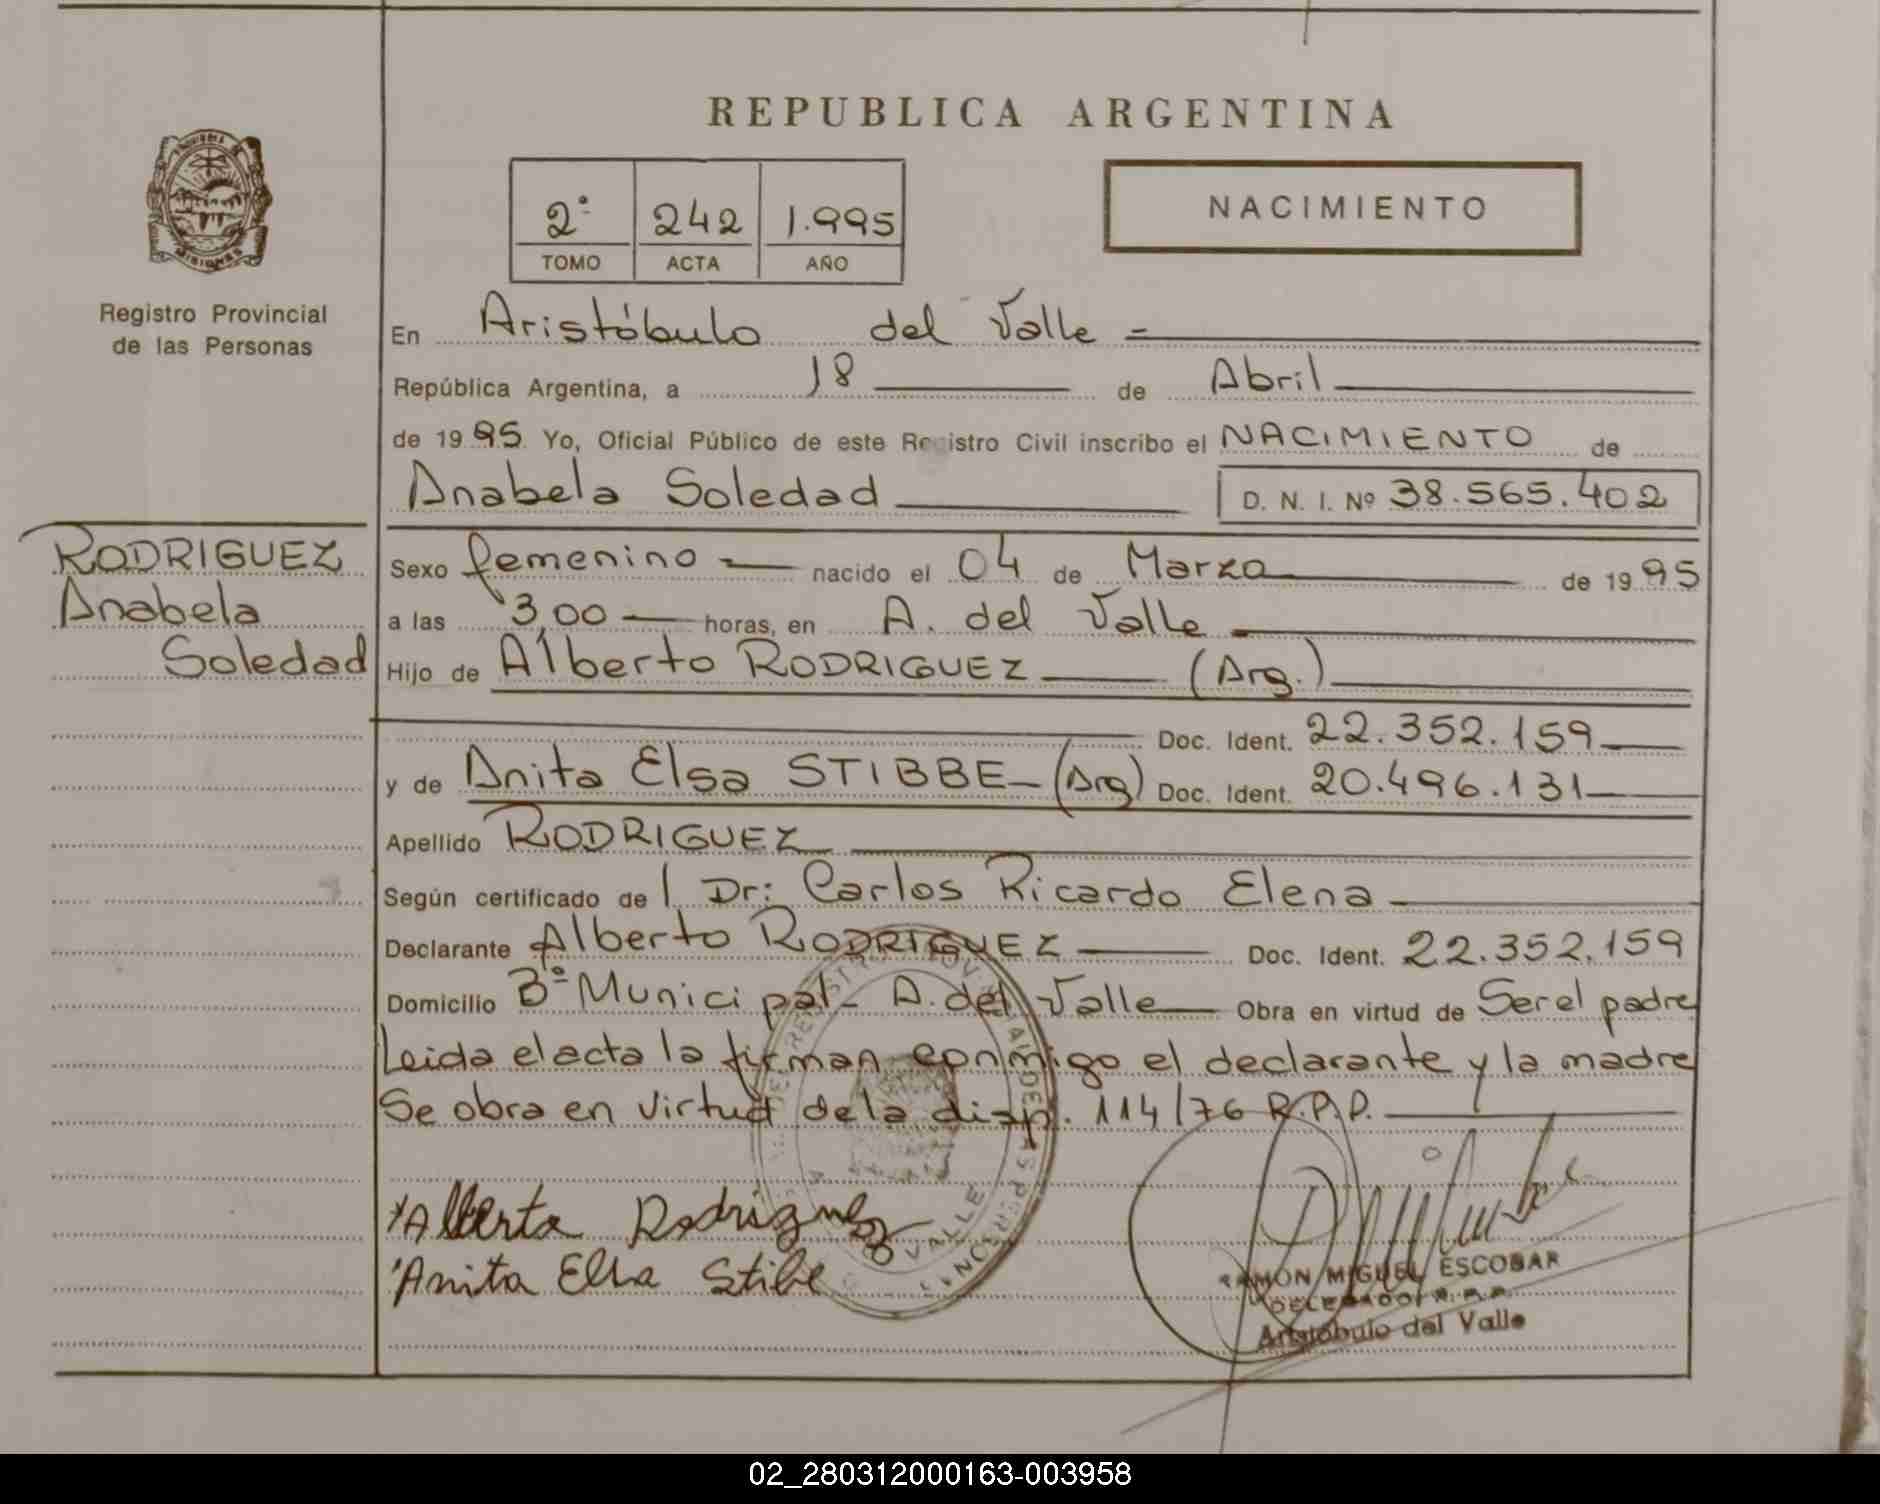 REPUBLICA ARGENTINA
2º 242 1.995
TOMO ACTA AÑO
NACIMIENTO
MISIONES
Registro Provincial
de las Personas
En Aristóbulo del Valle =
República Argentina, a 18 de Abril
de 1995 Yo, Oficial Público de este Registro Civil inscribo el NACIMIENTO de
Anabela Soledad D. N. I. Nº 38.565.402
RODRIGUEZ
Anabela
Soledad
Sexo femenino nacido el 04 de Marzo de 1995
a las 3,00 horas, en A. del Valle
Hijo de Alberto RODRIGUEZ (Arg.)
Doc. Ident. 22.352.159
y de Anita Elsa STIBBE (Arg) Doc. Ident. 20.496.131
Apellido RODRIGUEZ
Según certificado de l Dr: Carlos Ricardo Elena
Declarante Alberto RODRIGUEZ Doc. Ident. 22.352.159
Domicilio Bº Municipal - A. del Valle Obra en virtud de Ser el padre
Leida el acta la firman conmigo el declarante y la madre
Se obra en virtud de la disp. 114/76 R.P.P.
Alberto Rodriguez
Anita Elsa Stibe
VALLE
RAMON MIGUEL ESCOBAR
DELEGADO R.P.P.
Aristóbulo del Valle
02_280312000163-003958